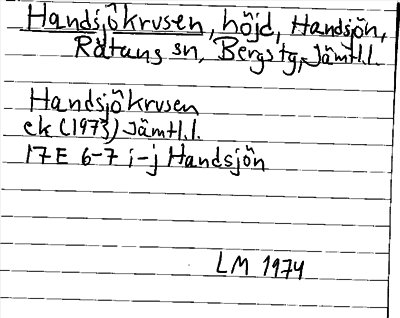 Handsjökrusen, höjd, Handsjön,
Rätans sn, Bergs tg, Jämtl.l.
Handsjökrusen
ek (1973) Jämtl.l.
17E 6-7 i-j Handsjön
LM 1974